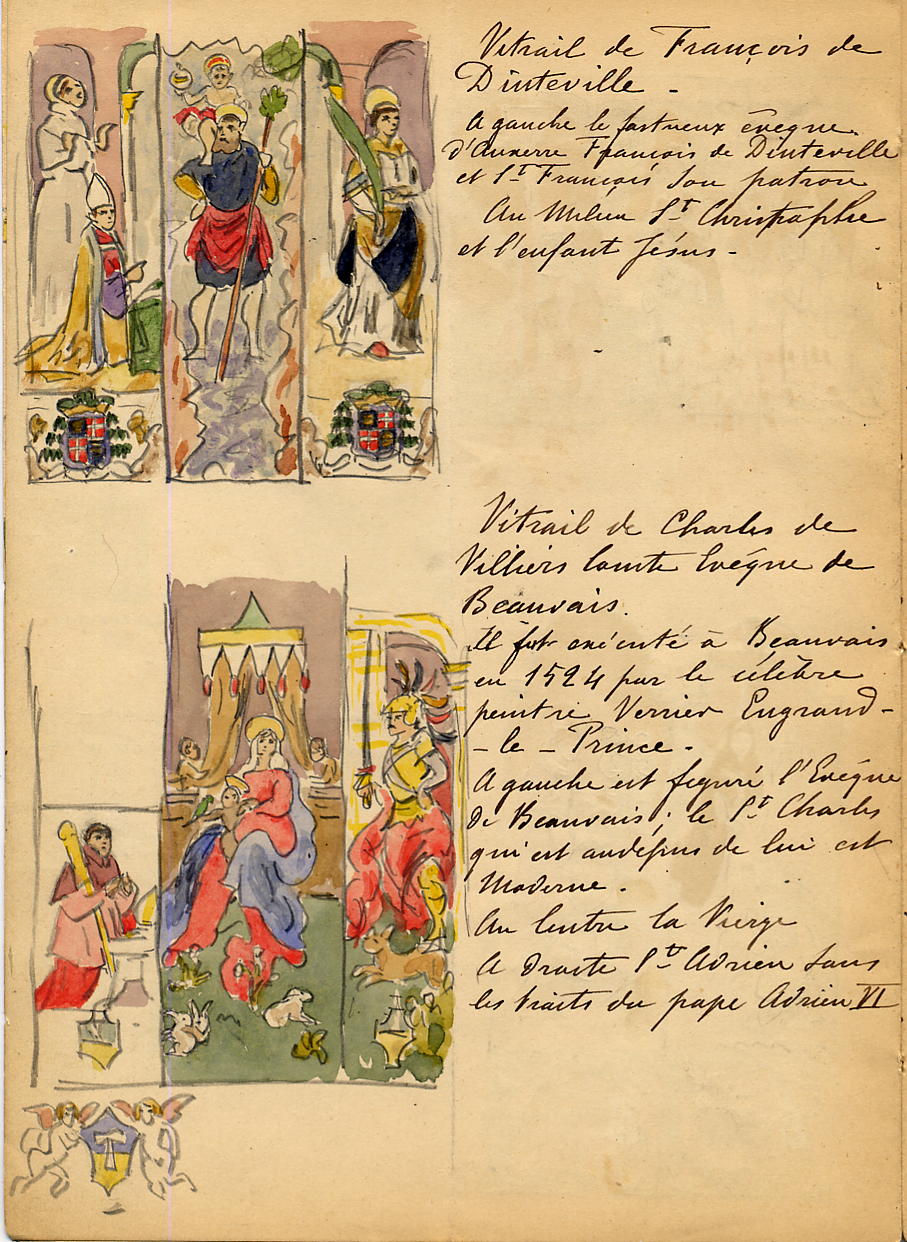 Vitrail de François de
Dinteville -
A gauche le fastueux évêque
d'Auxerre François de Dinteville
et St François son patron
Au Milieu St Christophe
et l'enfant Jésus -
Vitrail de Charles de
Villiers Comte Evêque de
Beauvais.
Il fut exécuté à Beauvais
en 1524 par le célèbre
peintre Verrier Engrand-
- le - Prince -
A gauche est figuré l'Evêque
de Beauvais ; le St Charles
qui est audessus de lui est
Moderne.
Au Centre la Vierge
A Droite St Adrien sous
les traits du pape Adrien VI